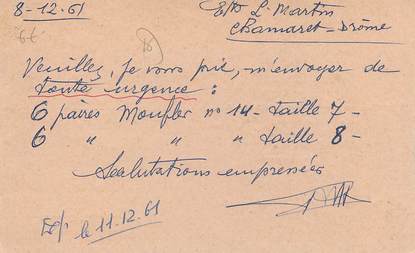 8-12.61
Ets L. Martin
Chamaret - Drôme
Veuillez, je vous prie, m'envoyer de
toute urgence :
6 paires Moufles no 14 - taille 7 -
6 " " " taille 8 -
Salutations empressées
le 11.12.61